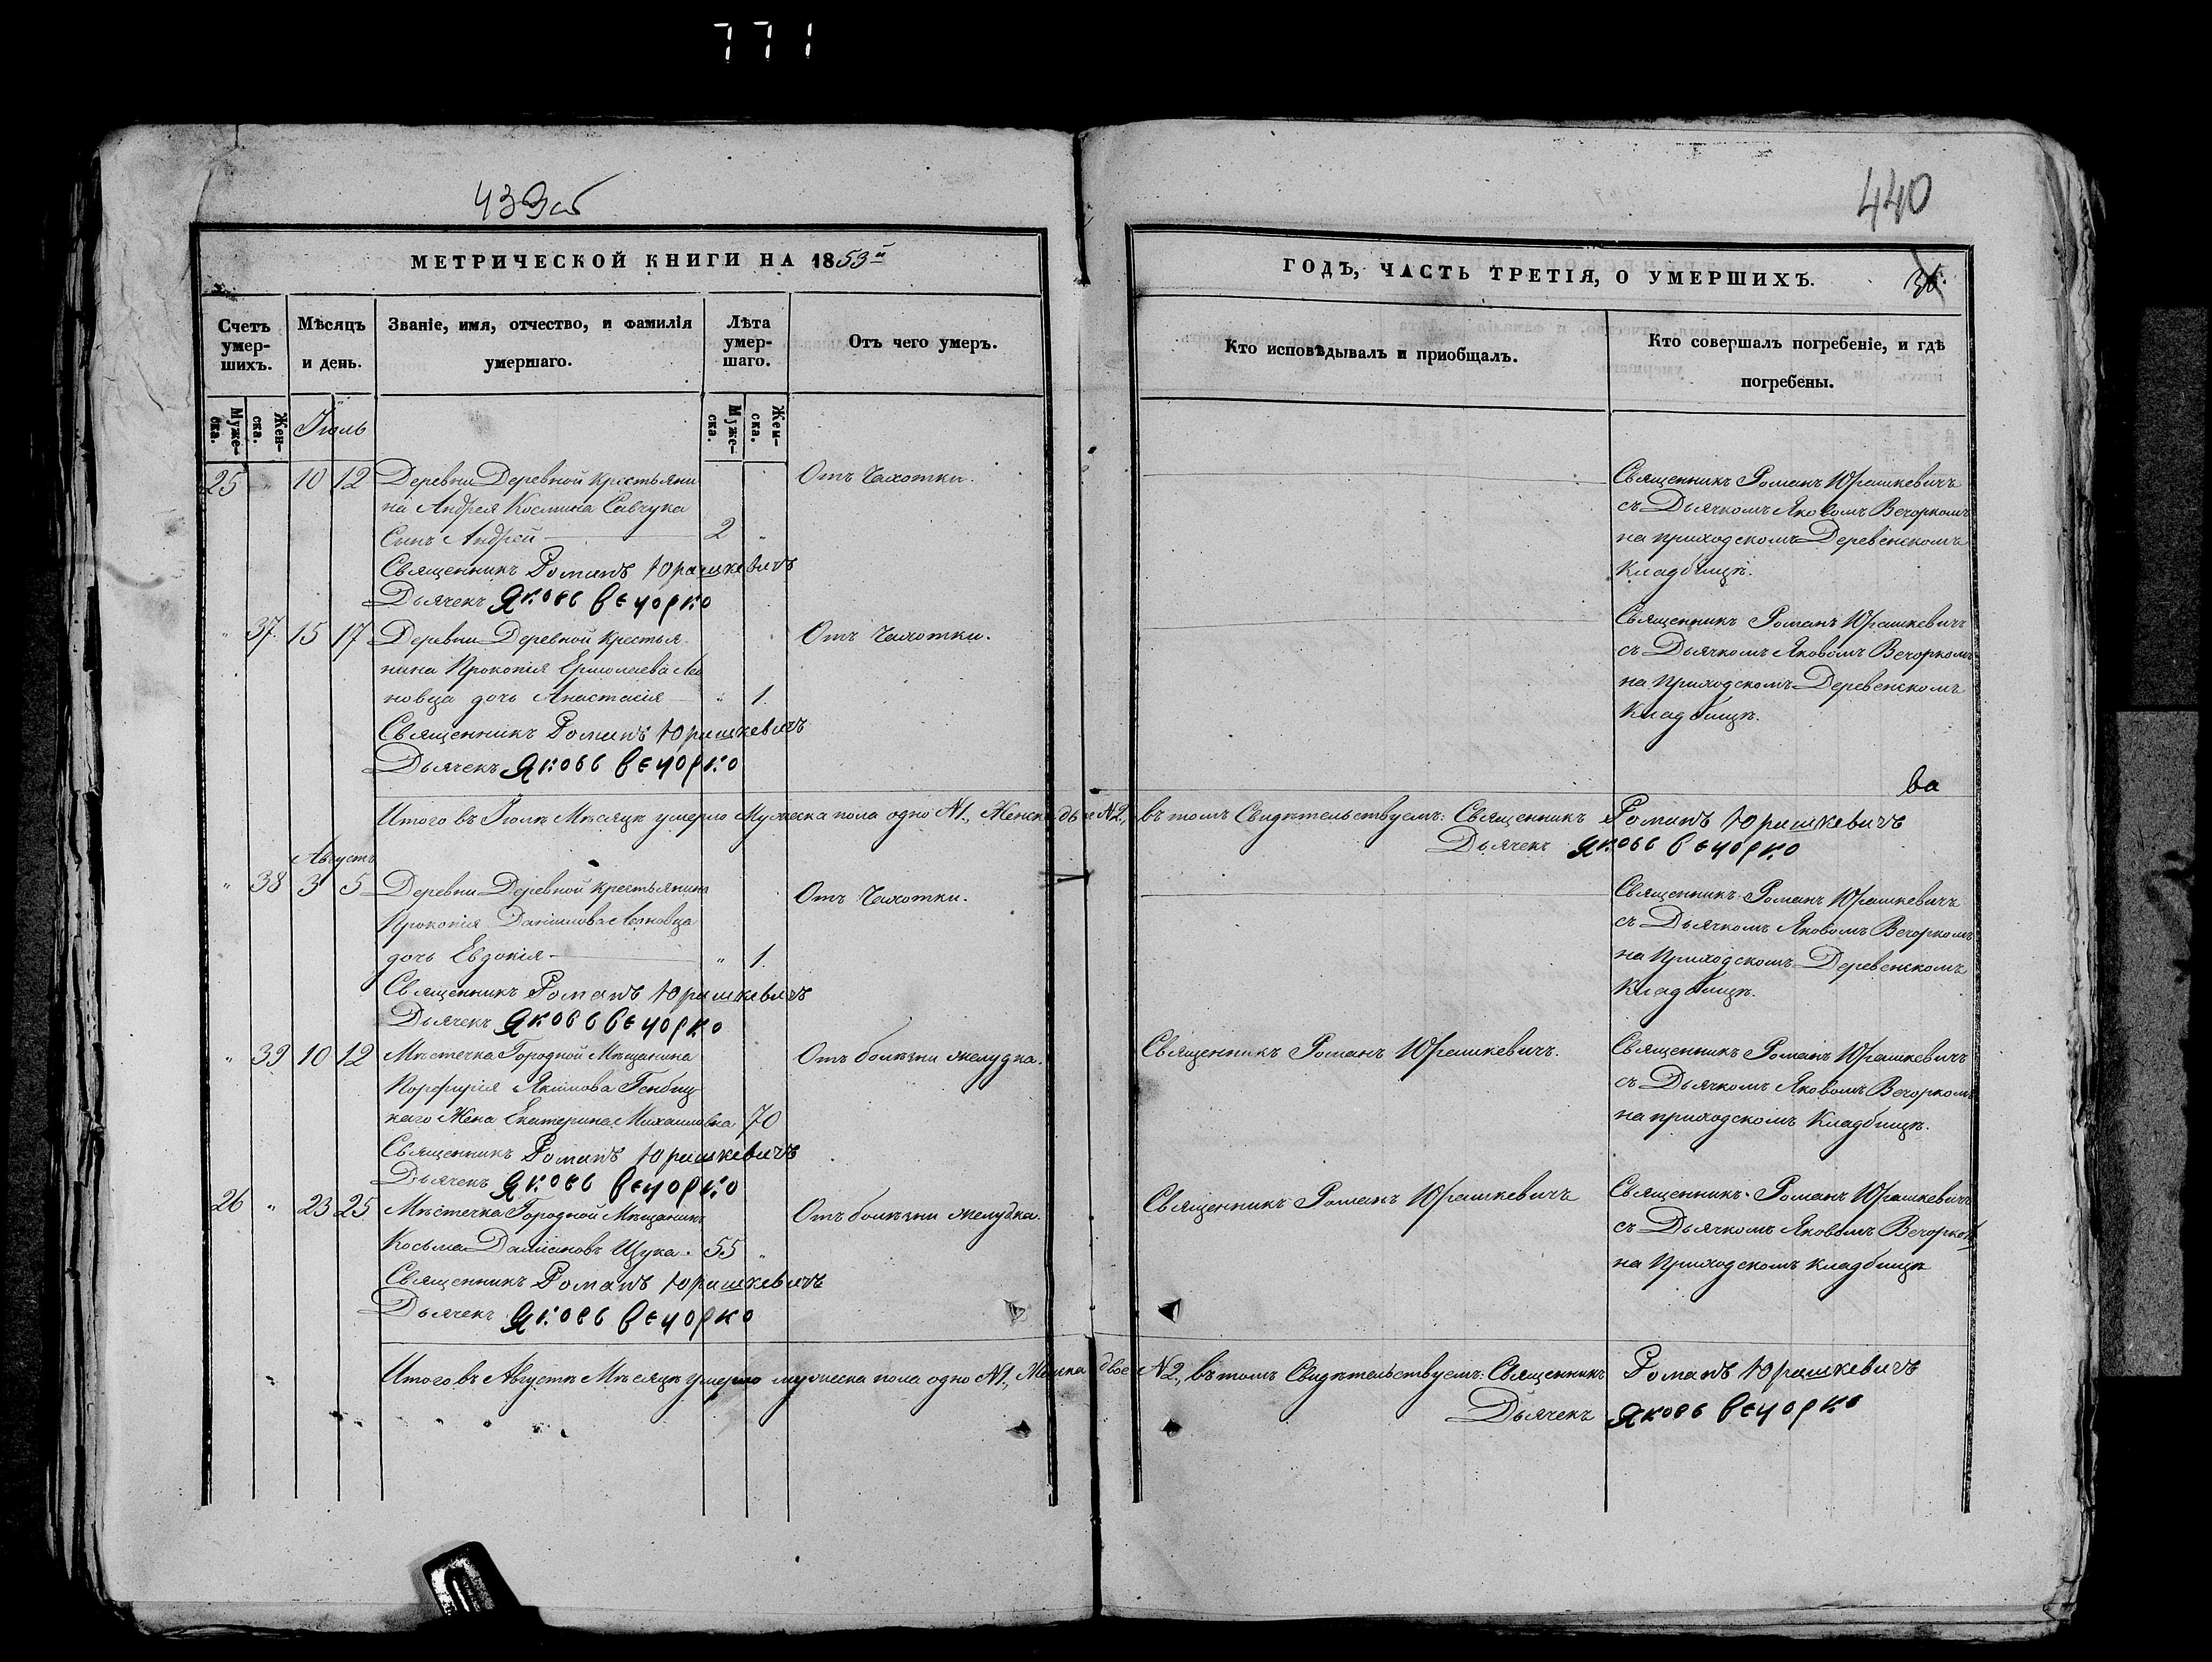 771
439об
440
МЕТРИЧЕСКОЙ КНИГИ НА 1853й
Счетъ умер-шихъ.
Мѣсяцъ и день.
Званіе, имя, отчество, и фамилія умершаго.
Лѣта умер-шаго.
Отъ чего умеръ.
Муже-ска.
Жен-ска.
Муже-ска.
Жен-ска.
Іюль
25 " 10 12 Деревни Деревной крестьяни Отъ Чахотки.
на Андрея Космина Савчука
Сынъ Андрей 2 "
Священникъ Романъ Юрашкевичъ
Дьячекъ Яковъ Вечорко
" 37. 15 17 Деревни Деревной крестья- Отъ Чахотки.
нина Прокопія Ермолаева Лео
новца дочь Анастасія " 1.
Священникъ Романъ Юрашкевичъ
Дьячекъ Яковъ Вечорко
Итого въ Іюлѣ Мѣсяцѣ умерло Мужеска пола одно №1., Женска двѣ №2,
Августъ
" 38 3 5 Деревни Деревной крестьянина Отъ Чахотки.
Прокопія Даніилова Леоновца
дочь Евдокія " 1.
Священникъ Романъ Юрашкевичъ
Дьячекъ Яковъ Вечорко
" 39 10 12 Мѣстечка Городной Мѣщанина Отъ болѣзни желудка.
Порфирія Якимова
каго Жена Екатерина Михаиловна 70
Священникъ Романъ Юрашкевичъ
Дьячекъ Яковъ Вечорко
26 " 23 25 Мѣстечка Городной Мѣщанинъ Отъ болѣзни желудка.
Косьма Даміановъ Щука. 55 "
Священникъ Романъ Юрашкевичъ
Дьячекъ Яковъ Вечорко
Итого въ Августѣ Мѣсяцѣ умерло мужеска пола одно №1., Женска двое
ГОДЪ, ЧАСТЬ ТРЕТІЯ, О УМЕРШИХЪ.
Кто исповѣдывалъ и приобщалъ.
Кто совершалъ погребеніе, и гдѣ погребены.
Священникъ Романъ Юрашкевичъ
съ Дьячкомъ Яковомъ Вечоркомъ
на приходскомъ Деревенскомъ
Кладбищѣ.
Священникъ Романъ Юрашкевичъ
съ Дьячкомъ Яковомъ Вечоркомъ
на Приходскомъ Деревенскомъ
Кладбищѣ.
ва
въ томъ Свидѣтельствуемъ: Священникъ Романъ Юрашкевичъ
Дьячекъ Яковъ Вечорко
Священникъ Романъ Юрашкевичъ
съ Дьячкомъ Яковомъ Вечоркомъ
на Приходскомъ Деревенскомъ
Кладбищѣ.
Священникъ Романъ Юрашкевичъ. Священникъ Романъ Юрашкевичъ
съ Дьячкомъ Яковомъ Вечоркомъ
на приходскомъ Кладбищѣ.
Священникъ Романъ Юрашкевичъ Священникъ Романъ Юрашкевичъ
съ Дьячкомъ Яковомъ Вечоркомъ
на Приходскомъ кладбищѣ
№2, въ томъ Свидѣтельствуемъ: Священникъ Романъ Юрашкевичъ
Дьячекъ Яковъ Вечорко